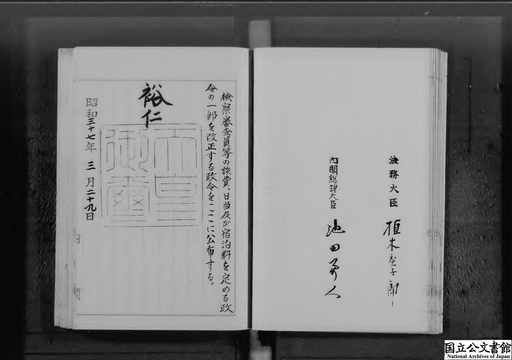 検察審査員等の旅費、日当及び宿泊料を定める政
令の一部を改正する政令をここに公布する。
裕仁
天皇
御璽
昭和三十七年三月二十九日
法務大臣 植木庚子郎
内閣総理大臣 池田勇人
国立公文書館
National Archives of Japan